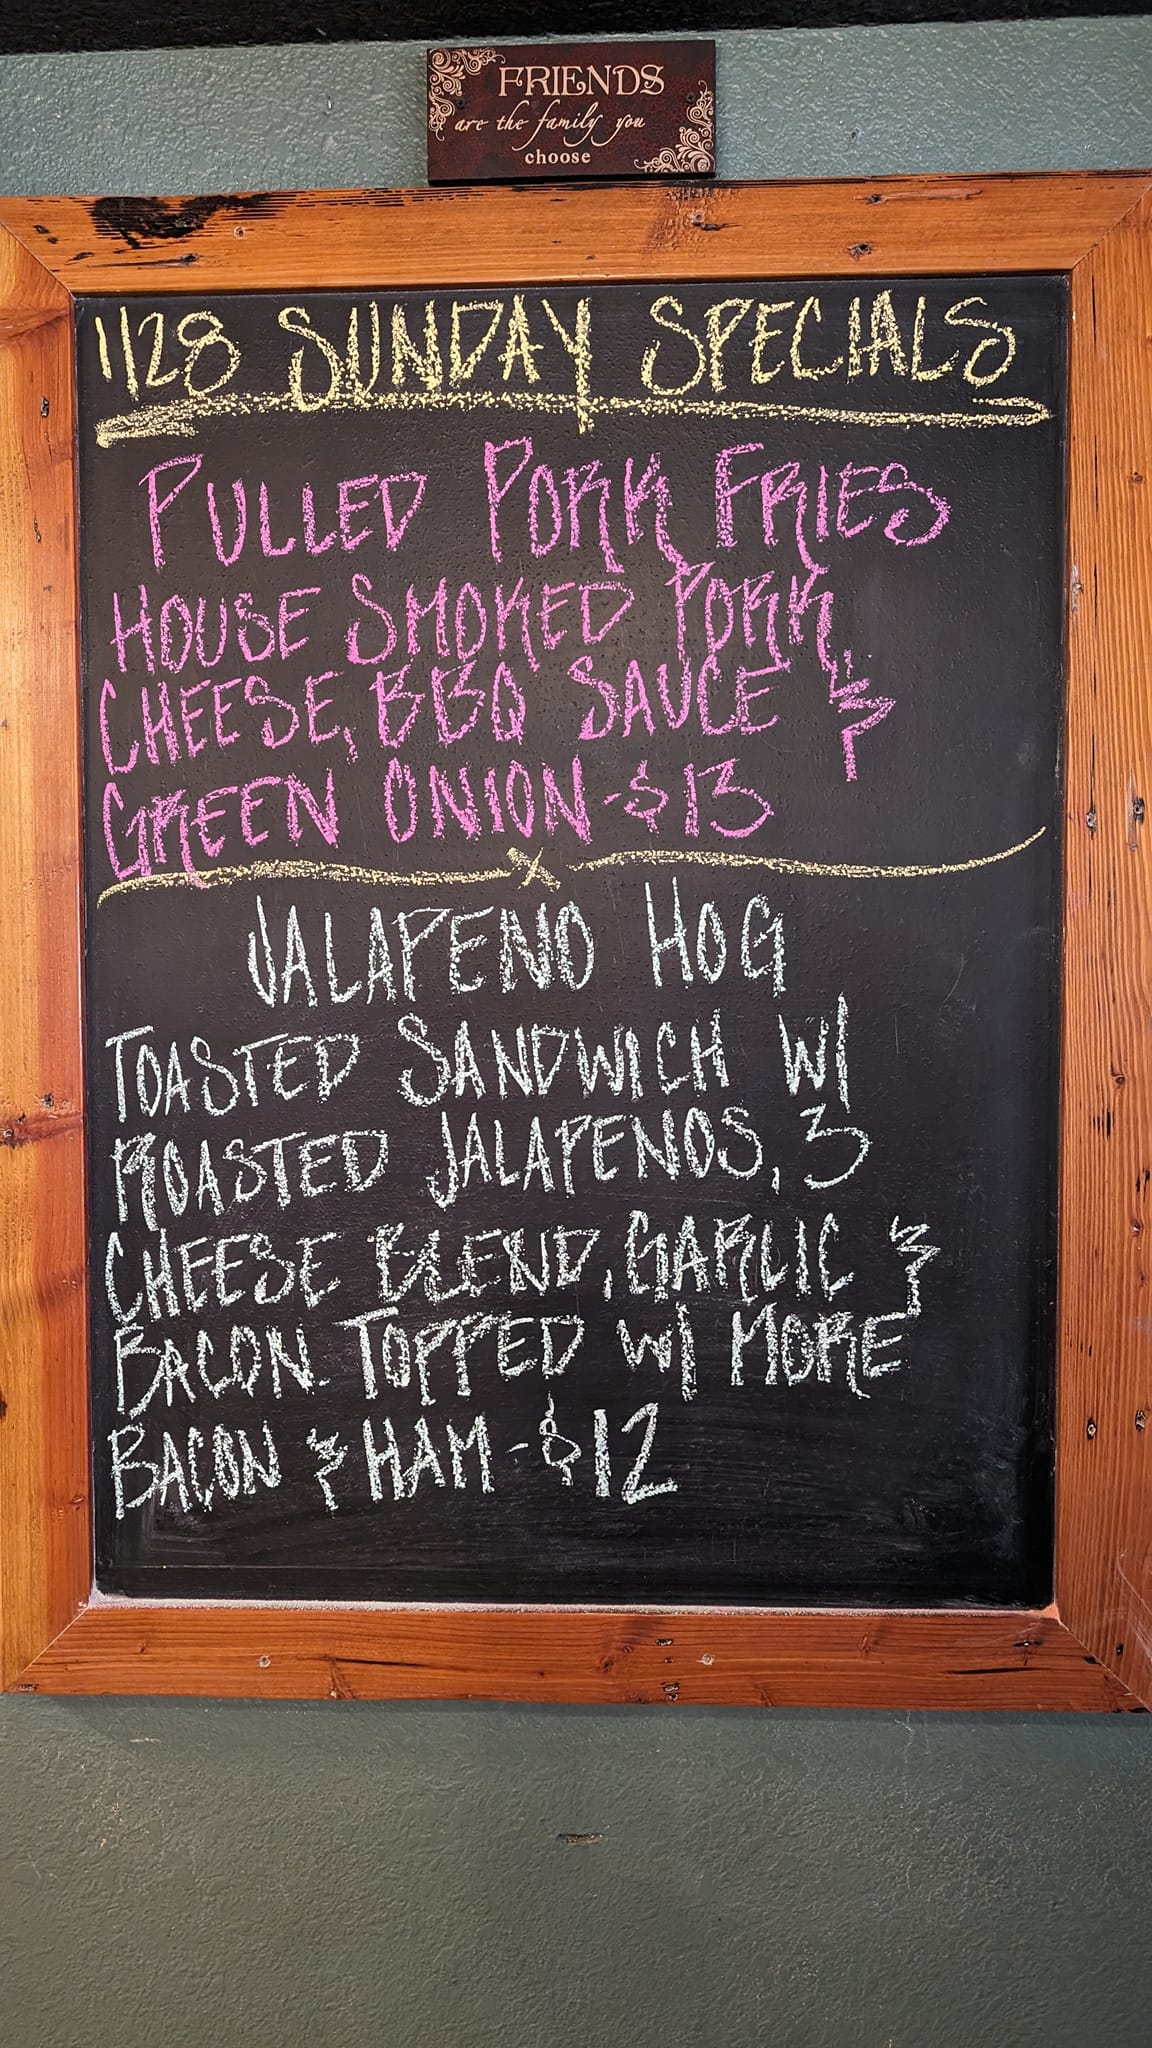 FRIENDS
are the family you
choose
1/28 SUNDAY SPECIALS
PULLED PORK FRIES
HOUSE SMOKED PORK,
CHEESE, BBQ SAUCE &
GREEN ONION - $13
JALAPENO HOG
TOASTED SANDWICH W/
ROASTED JALAPENOS, 3
CHEESE BLEND, GARLIC &
BACON. TOPPED W/ MORE
BACON & HAM - $12